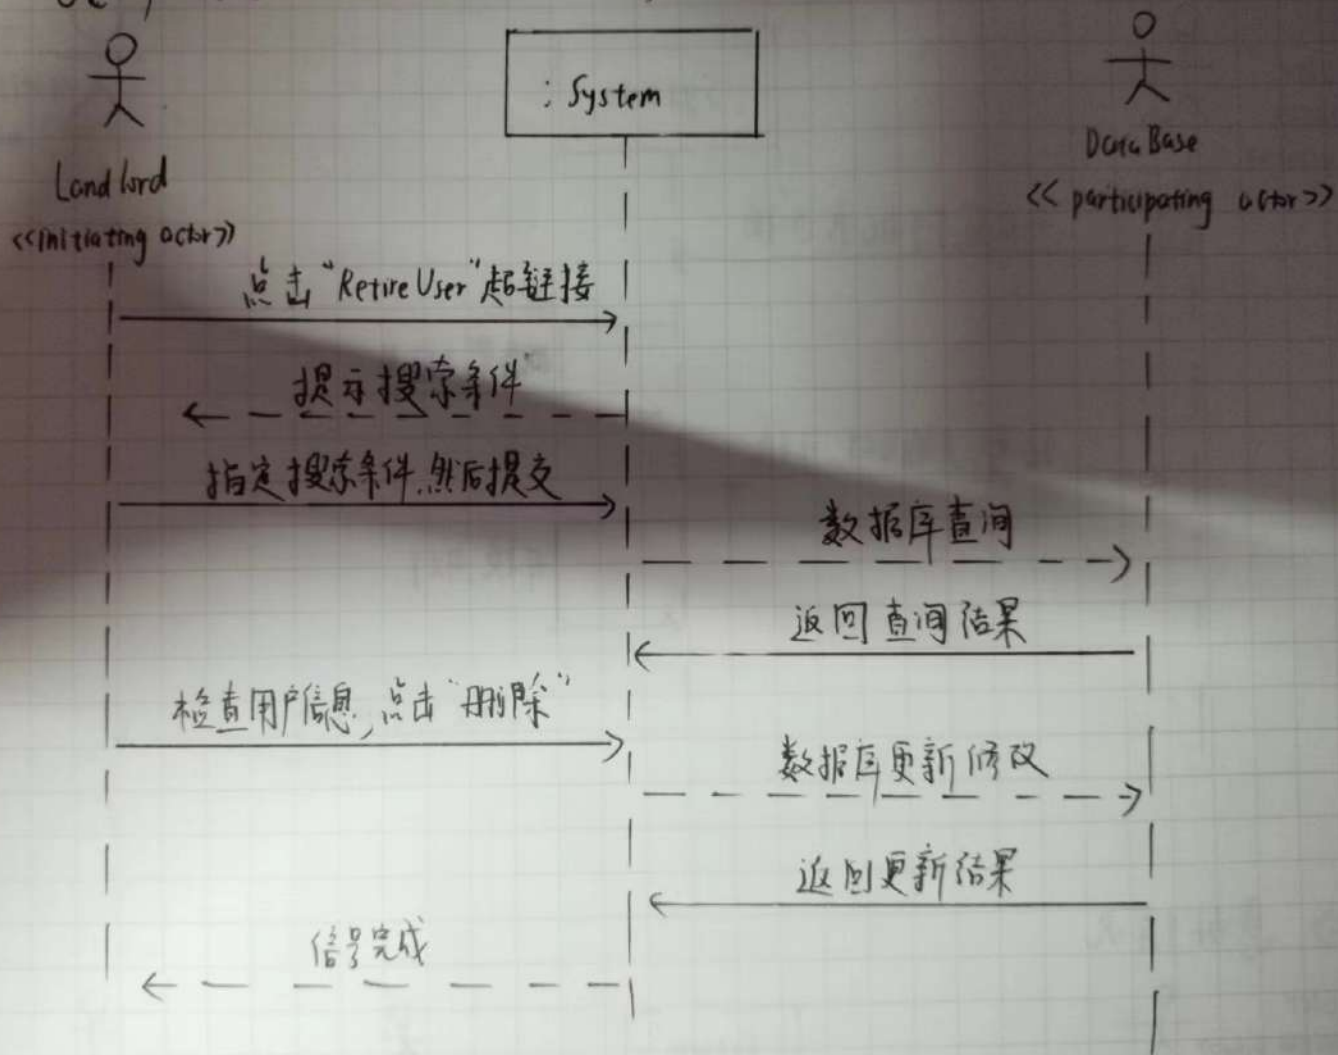 : System
Landlord
<<initiating actor>>
DataBase
<< participating actor>>
点击“Retire User”超链接
提示搜索条件
指定搜索条件,然后提交
数据库查询
返回查询结果
检查用户信息,点击“删除”
数据库更新修改
返回更新结果
信号完成